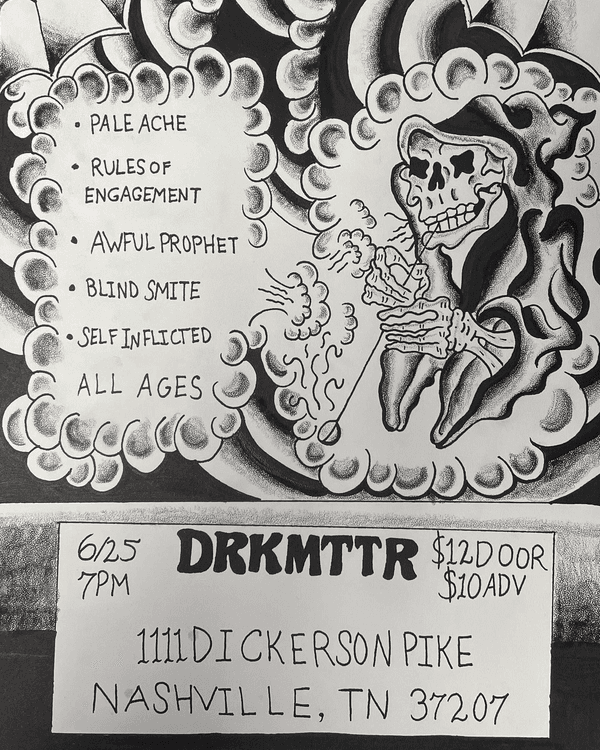 • PALE ACHE
• RULES OF
ENGAGEMENT
• AWFUL PROPHET
• BLIND SMITE
• SELF INFLICTED
ALL AGES
6/25
7PM
DRKMTTR
$12 DOOR
$10 ADV
1111 DICKERSON PIKE
NASHVILLE, TN 37207